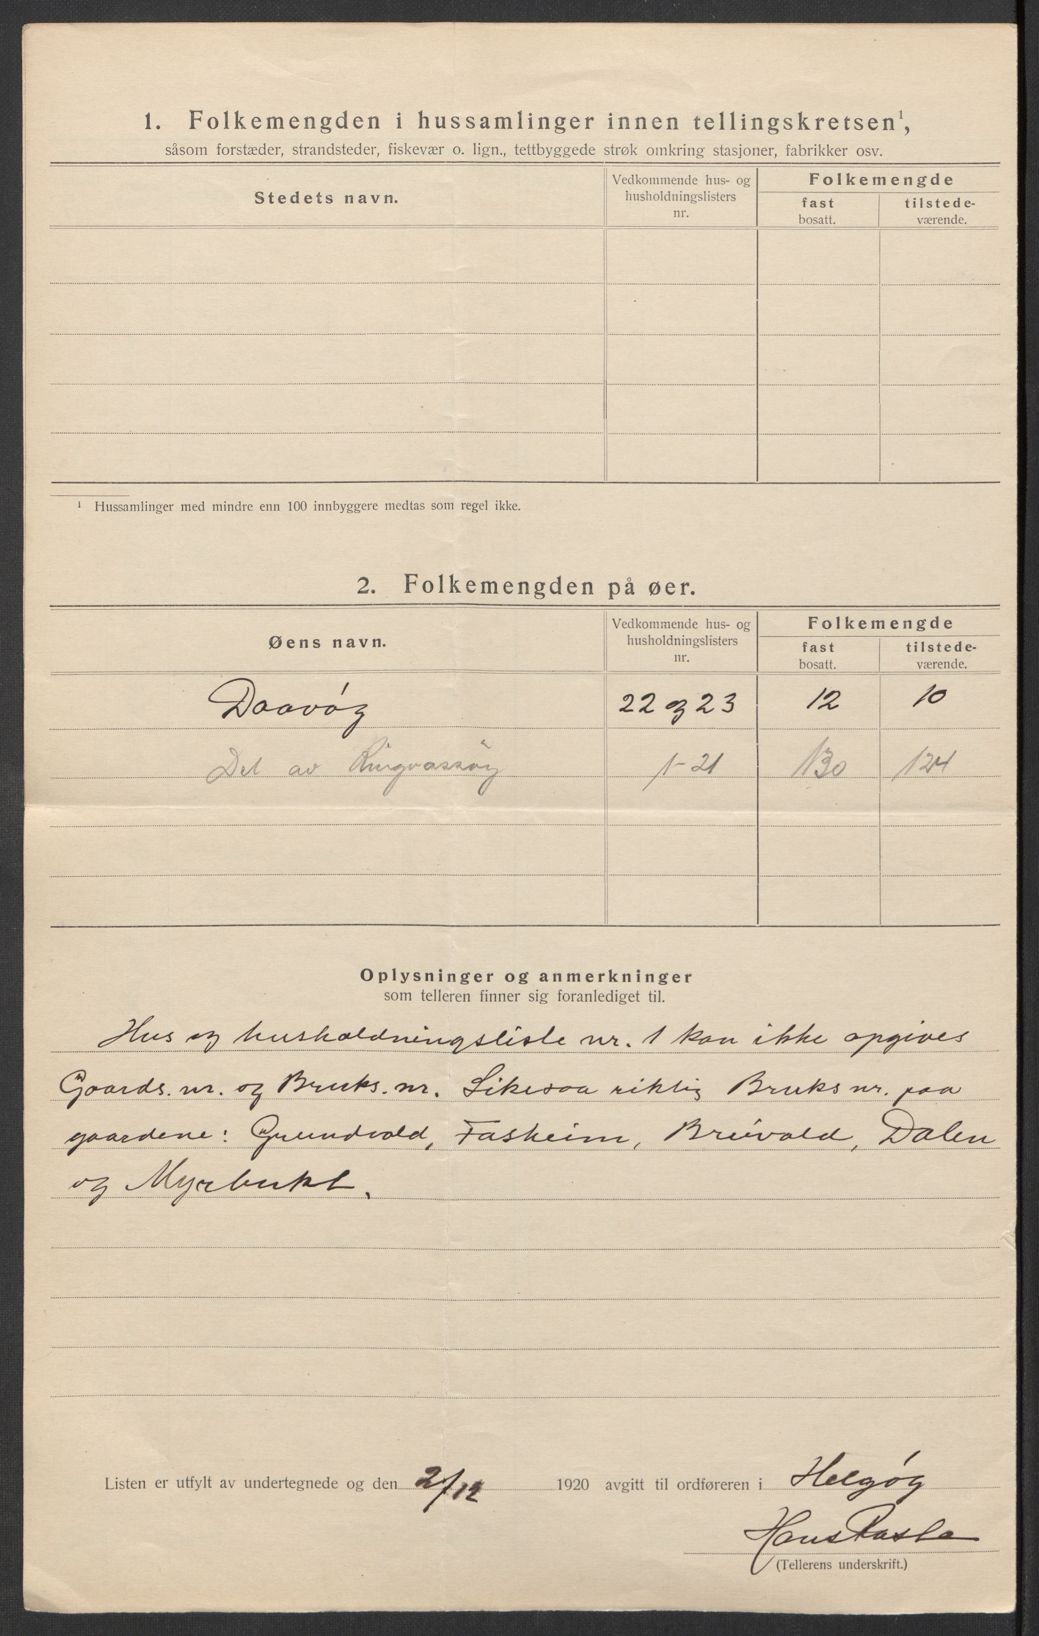 1. Folkemengden i hussamlinger innen tellingskretsen¹,
såsom forstæder, strandsteder, fiskevær o. lign., tettbyggede strøk omkring stasjoner, fabrikker osv.
Stedets navn.
Vedkommende hus- og husholdningslisters nr.
Folkemengde
fast bosatt.
tilstede-værende.
¹ Hussamlinger med mindre enn 100 innbyggere medtas som regel ikke.
2. Folkemengden på øer.
Øens navn.
Vedkommende hus- og husholdningslisters nr.
Folkemengde
fast bosatt.
tilstede-værende.
Daavøy 22 og 23 12 10
Del av Ringvassøy 1-21 130 124
Oplysninger og anmerkninger
som telleren finner sig foranlediget til.
Hus og husholdningsliste nr. 1 kan ikke opgives
Gaards. nr. og Bruks. nr. Likesaa riktig Bruks nr. paa
gaardene: Grundvold, Fasheim, Breivold, Dalen
og Myrbukt.
Listen er utfylt av undertegnede og den 2/12 1920 avgitt til ordføreren i Helgøy
Hans
(Tellerens underskrift.)